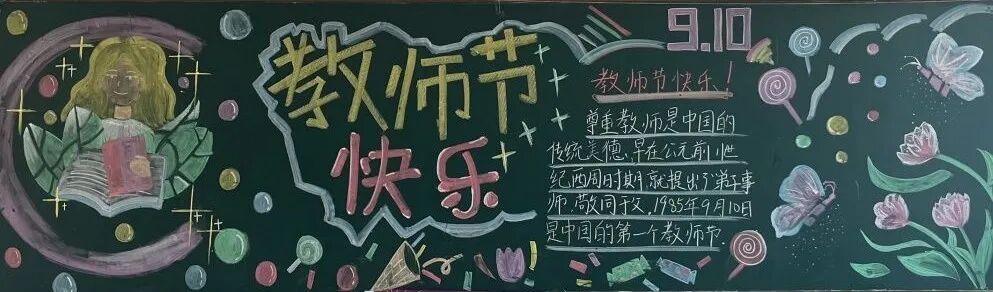 教师节
快乐
9.10
教师节快乐！
尊重教师是中国的
传统美德、早在公元前11世
纪西周时期就提出了弟子事
师，敬同于父，1985年9月10日
是中国的第一个教师节.